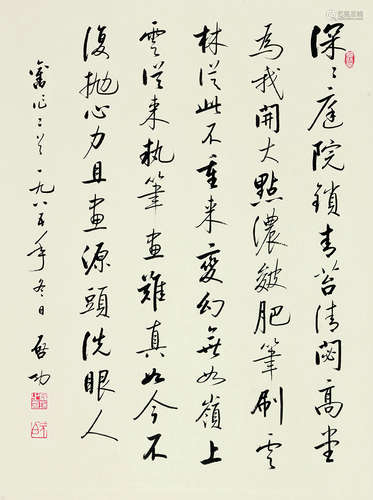 深〻庭院鎖青苔清閟高堂
為我開大點濃皴肥筆刷雲
林從此不重來變幻無如嶺上
雲從來執筆畫難真如今不
復拋心力且畫源頭洗眼人
舊作二首一九八五年冬日啟功